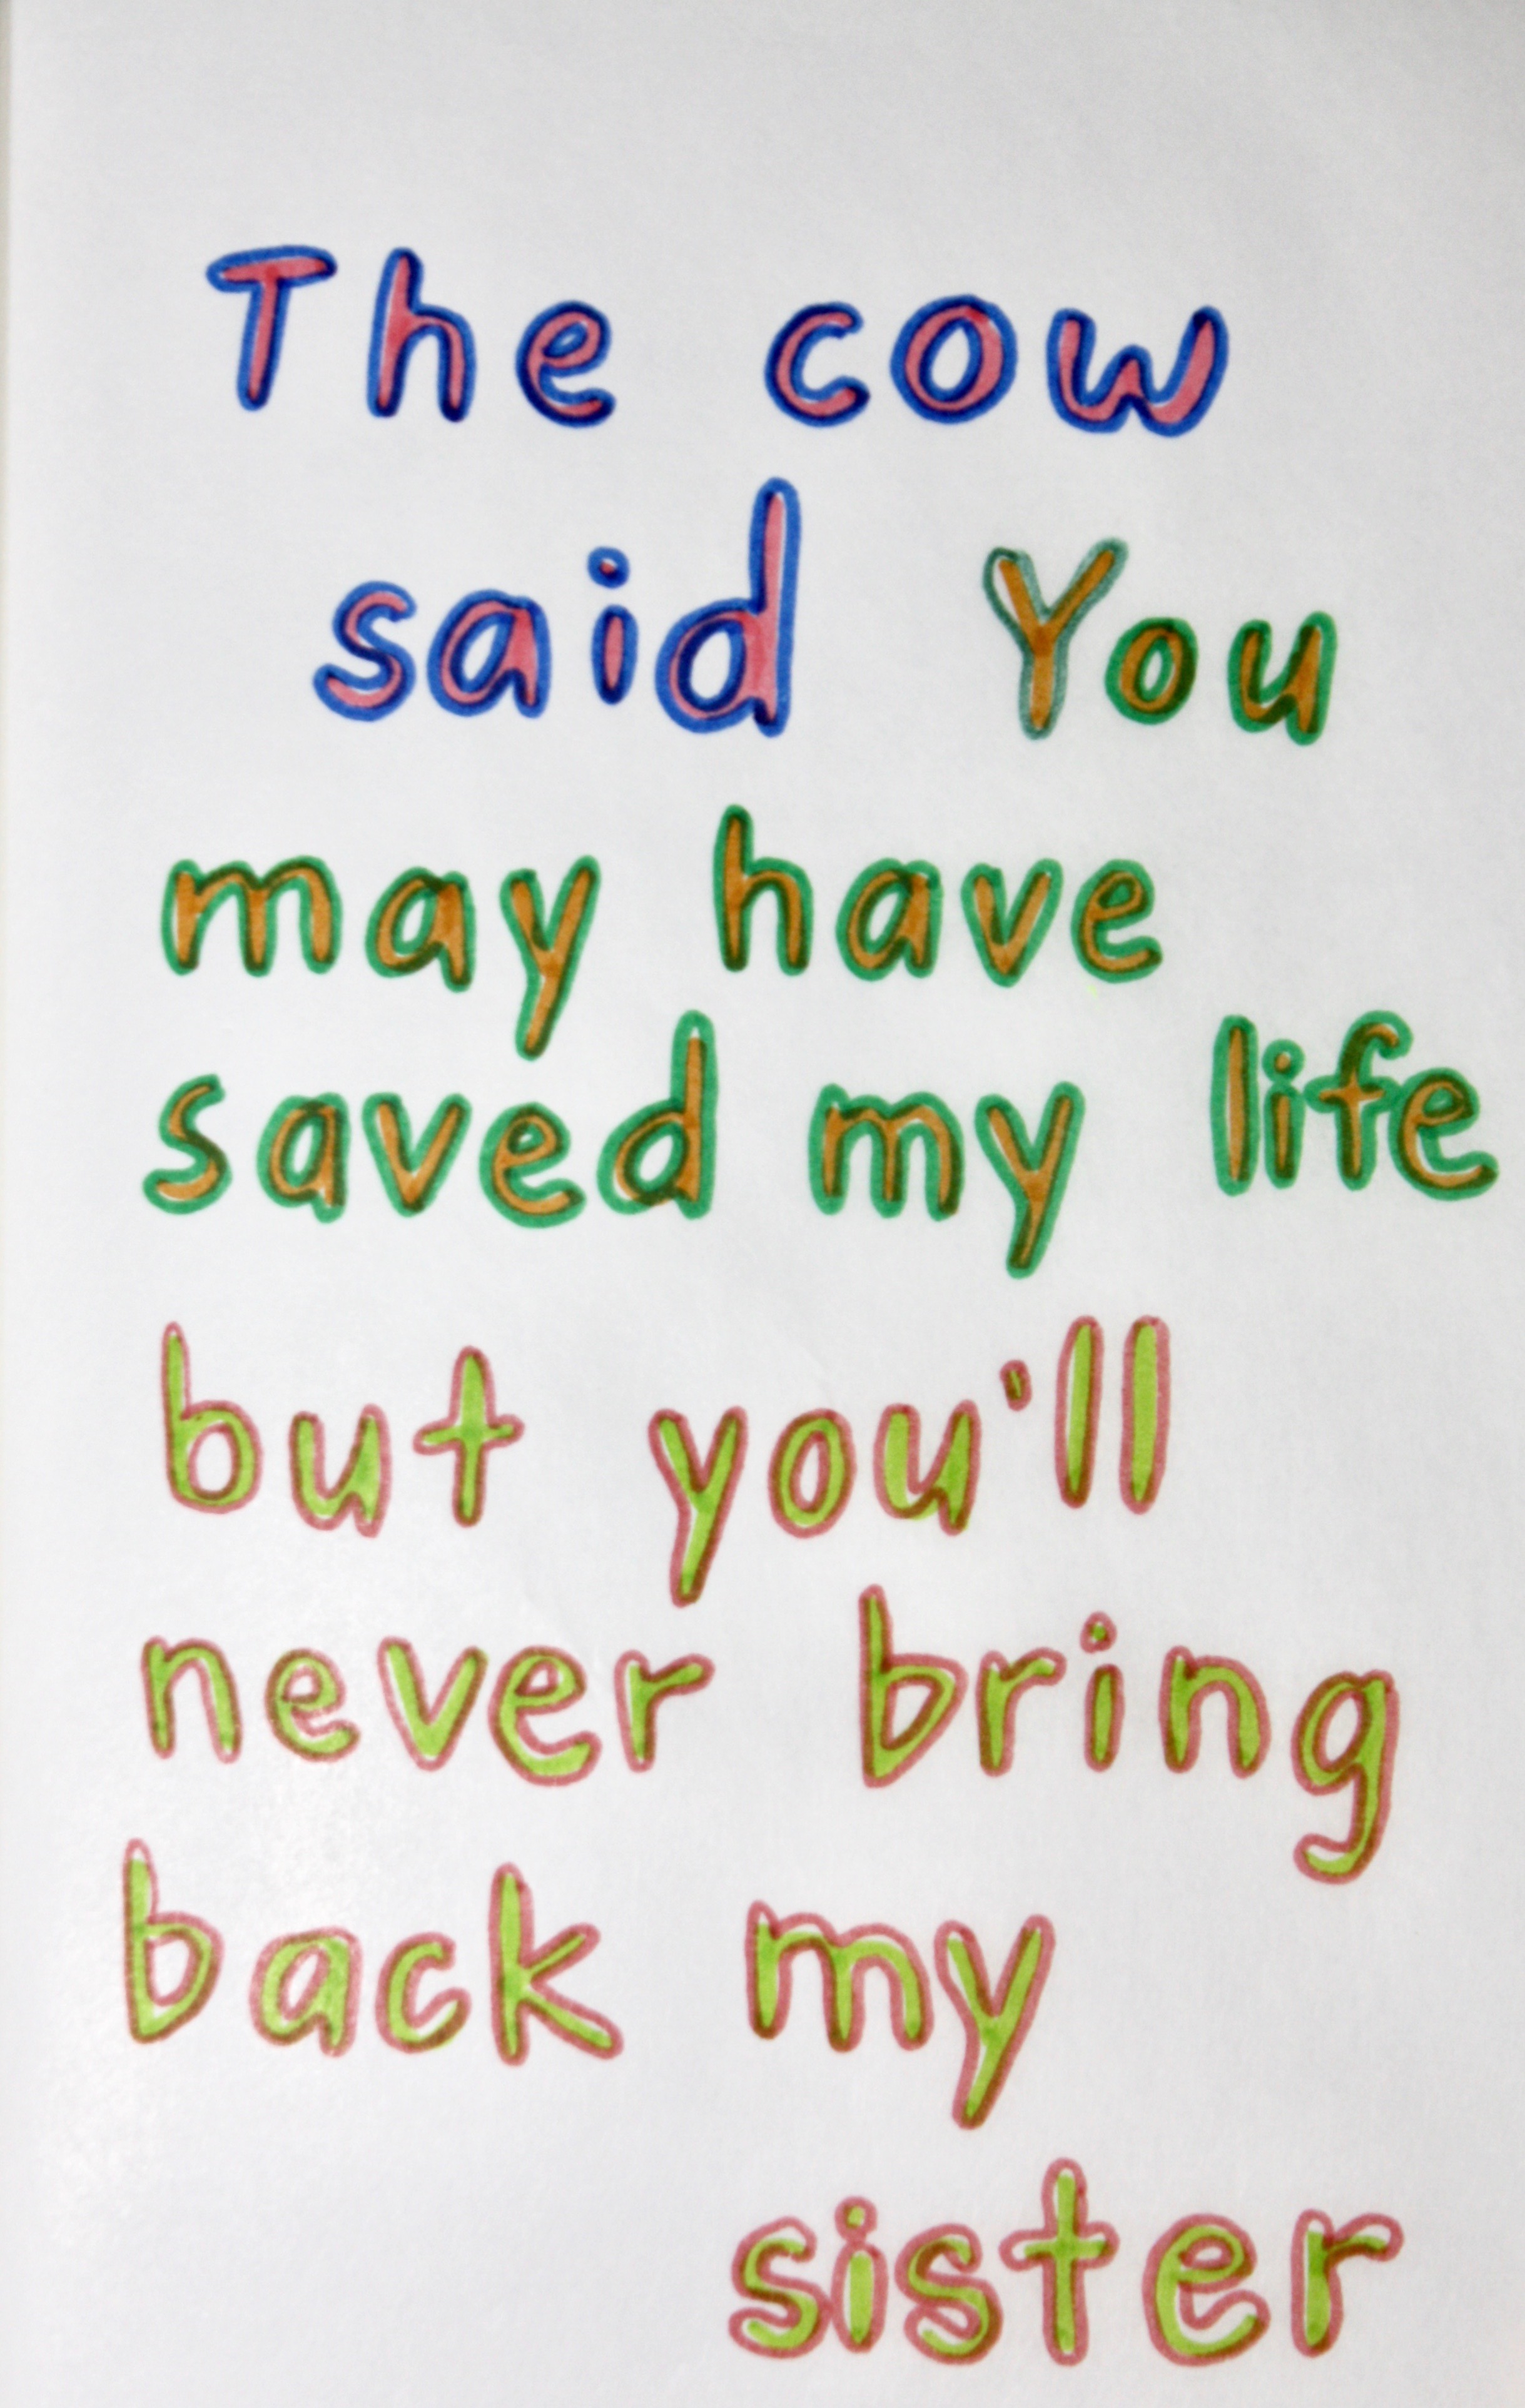 The cow
said You
may have
saved my life
but you'll
never bring
back my
sister